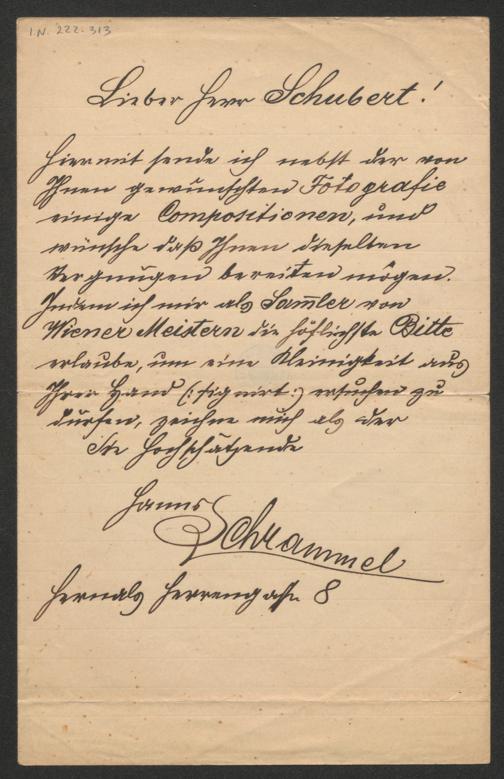 I.N. 222.313
Lieber Herr Schubert!
Hiermit sende ich nebst der von
Ihnen gewünschten Fotografie
einige Compositionen, und
wünsche daß Ihnen dieselben
Vergnügen bereiten mögen.
Indem ich mir als Sam̅ler von
Wiener Meistern die höflichste Bitte
erlaube, um eine Kleinigkeit aus
Ihrer Hand (: signirt :) ersuchen zu
dürfen, zeichne mich als der
Sie Hochschätzende
Hanns
Schrammel
Hernals Herrengasse 8